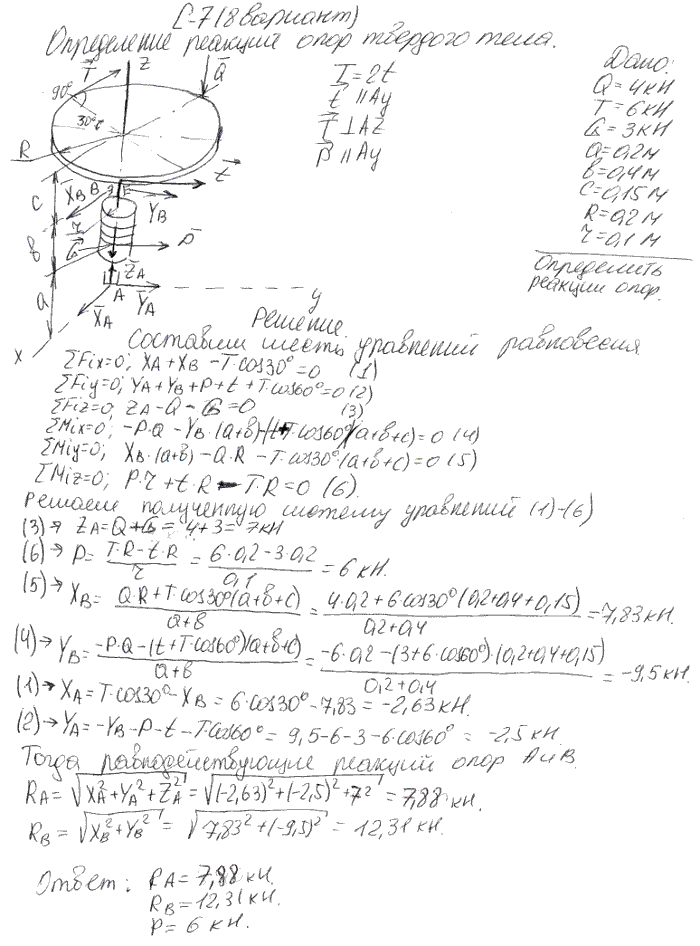 С-7 (8 вариант)
Определение реакций опор твердого тела.
T = 2t
t ∥ Ay
T ⊥ Az
P ∥ Ay
Дано:
Q = 4 кН
T = 6 кН
G = 3 кН
a = 0,2 м
b = 0,4 м
C = 0,15 м
R = 0,2 м
r = 0,1 м
Определить
реакции опор.
T
z
Q
90°
30°
R
t
C
X_B
B
Y_B
r
G
P
b
Z_A
a
A
Y_A
X_A
y
x
Решение
Составим шесть уравнений равновесия
ΣFix=0; X_A + X_B - T·cos30° = 0 (1)
ΣFiy=0; Y_A + Y_B + P + t + T cos60° = 0 (2)
ΣFiz=0; Z_A - Q - G = 0 (3)
ΣMix=0; -P·a - Y_B·(a+b) - (t+T cos60°)(a+b+c) = 0 (4)
ΣMiy=0; X_B·(a+b) - Q·R - T·cos30°·(a+b+c) = 0 (5)
ΣMiz=0; P·r + t·R - T·R = 0 (6).
Решаем полученную систему уравнений (1)-(6)
(3)→ Z_A = Q+G = 4+3 = 7 кН
(6)→ P = (T·R - t·R)/r = (6·0,2 - 3·0,2)/0,1 = 6 кН.
(5)→ X_B = (Q·R + T·cos30°(a+b+c))/(a+b) = (4·0,2 + 6·cos30°(0,2+0,4+0,15))/(0,2+0,4) = 7,83 кН.
(4)→ Y_B = (-P·a - (t+T·cos60°)(a+b+c))/(a+b) = (-6·0,2 - (3+6·cos60°)·(0,2+0,4+0,15))/(0,2+0,4) = -9,5 кН.
(1)→ X_A = T·cos30° - X_B = 6·cos30° - 7,83 = -2,63 кН.
(2)→ Y_A = -Y_B - P - t - T·cos60° = 9,5-6-3-6·cos60° = -2,5 кН
Тогда равнодействующие реакций опор A и B.
R_A = √(X_A² + Y_A² + Z_A²) = √((-2,63)² + (-2,5)² + 7²) = 7,88 кН.
R_B = √(X_B² + Y_B²) = √(7,83² + (-9,5)²) = 12,31 кН.
Ответ: R_A = 7,88 кН.
R_B = 12,31 кН.
P = 6 кН.